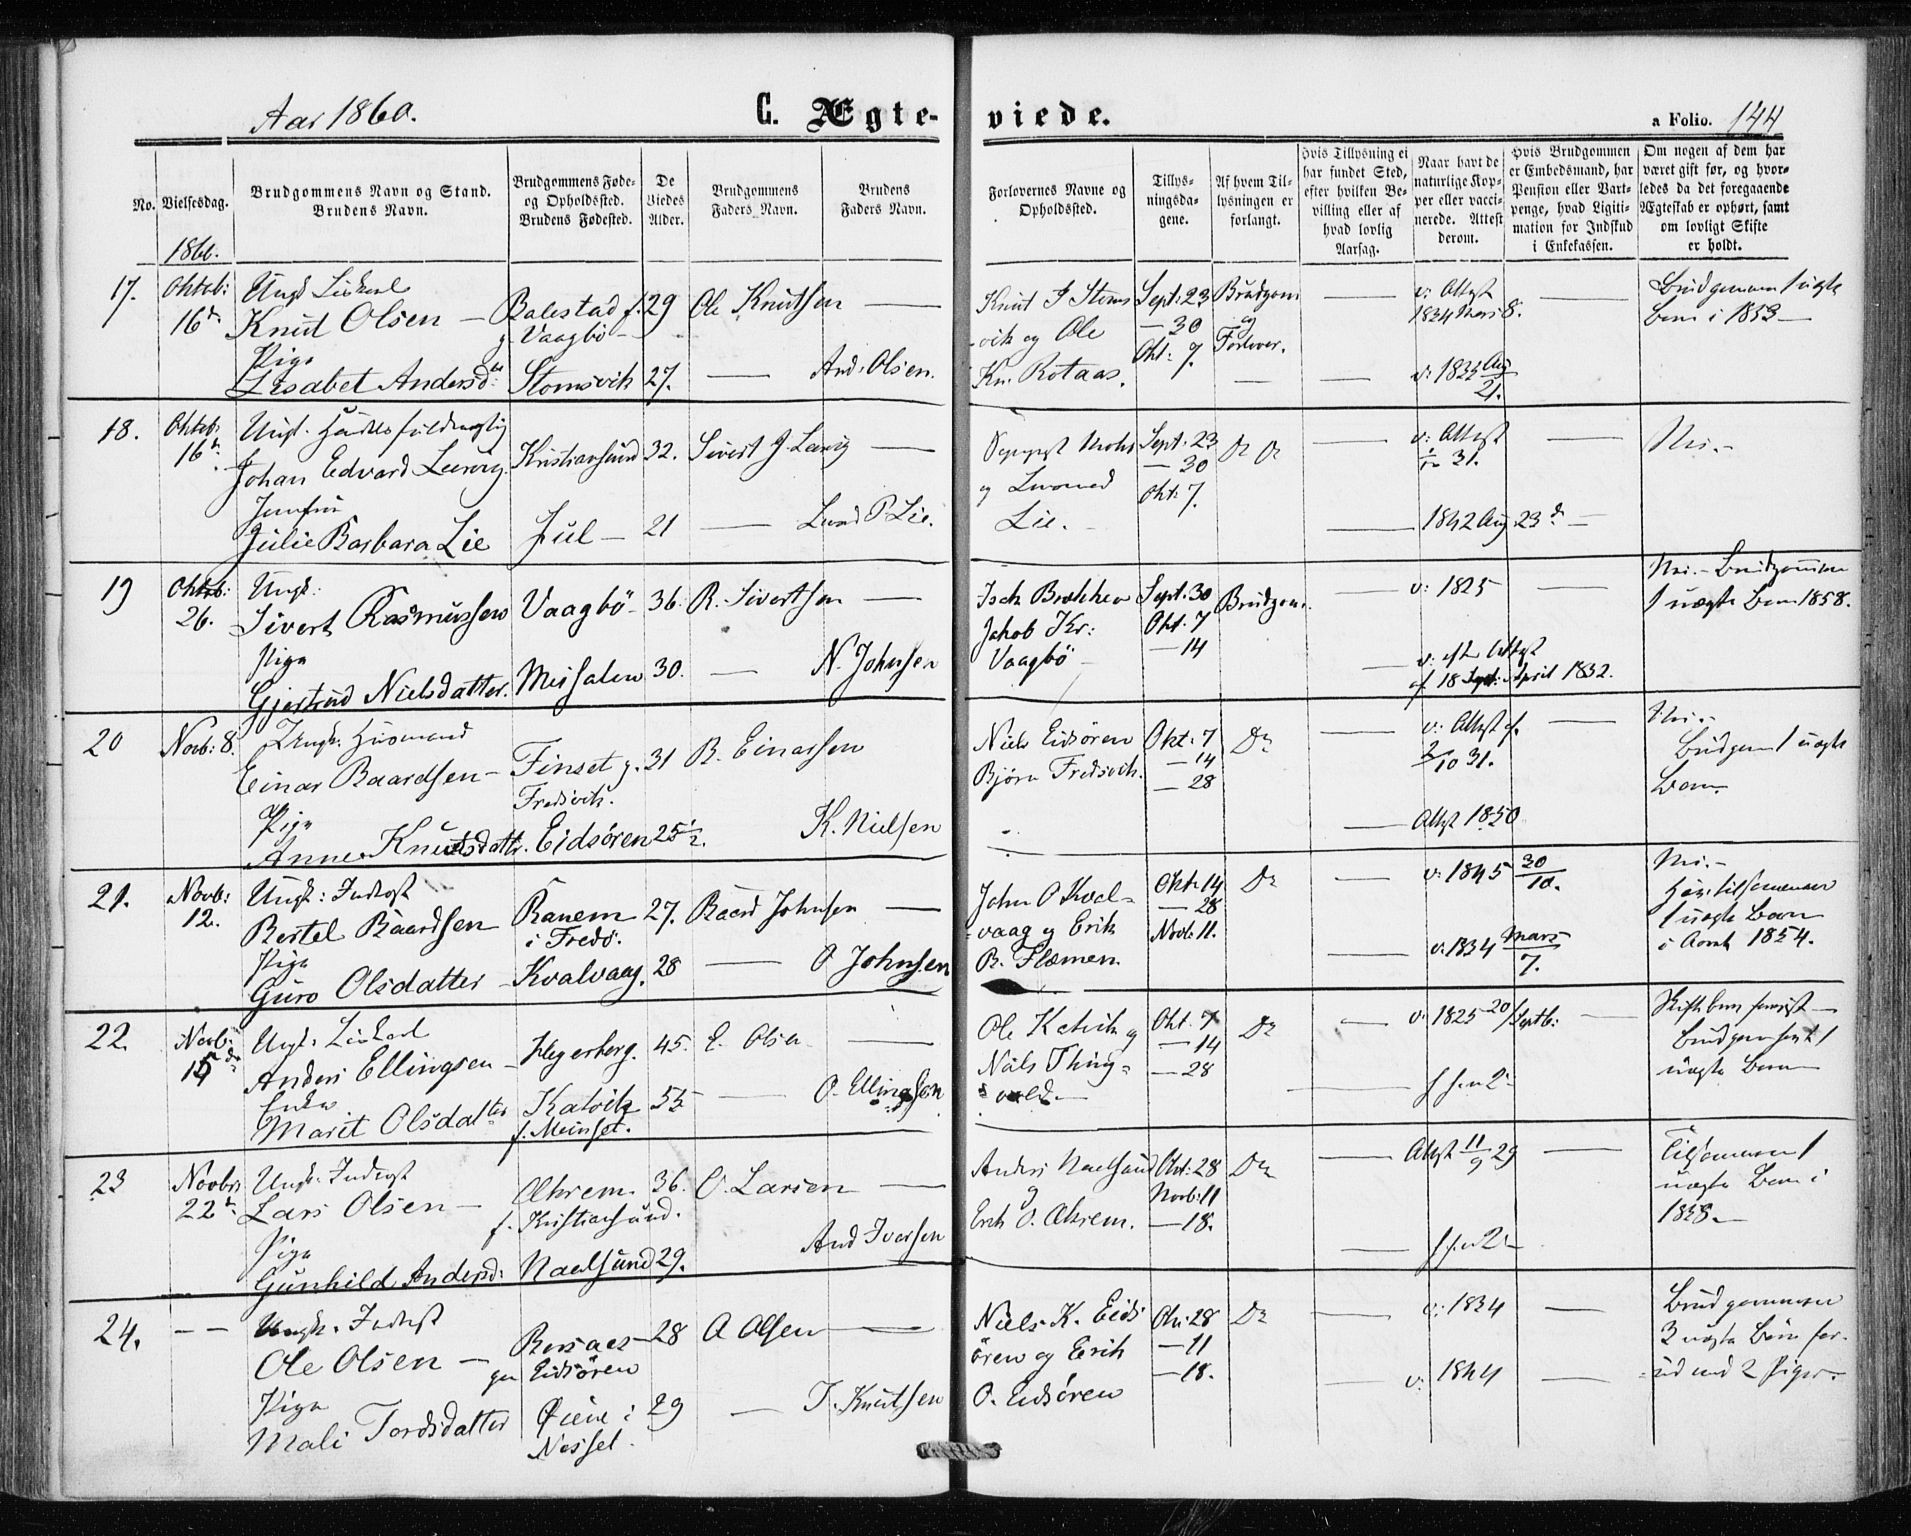 Aar 1860.
C. Ægte-
viede.
a Folio. 144
No.
Vielsesdag.
Brudgommens Navn og Stand.
Brudens Navn.
Brudgommens Føde-
og Opholdssted.
Brudens Fødested.
De
Viedes
Alder.
Brudgommens
Faders Navn.
Brudens
Faders Navn.
Forlovernes Navne og
Opholdssted.
Tillys-
ningsda-
gene.
Af hvem Til-
lysningen er
forlangt.
Hvis Tillysning ei
har fundet Sted,
efter hvilken Be-
villing eller af
hvad lovlig
Aarsag.
Naar havt de
naturlige Kop-
per eller vacci-
nerede. Attest
derom.
Hvis Brudgommen
er Embedsmand, har
Pension eller Vart-
penge, hvad Ligiti-
mation for Indskud
i Enkekassen.
Om nogen af dem har
været gift før, og hvor-
ledes da det foregaaende
Ægteskab er ophørt, samt
om lovligt Skifte
er holdt.
1860.
17.
Oktob:
16de
Ungk.
Knut Olsen —
Pige
Lisabet Andersd:
Balestad f.
g. Vaagbö —
Stomsvik
29
27.
Ole Knutsen —
— And. Olsen.
Knut Stoms
-vik og Ole
Kn. Rotaas.
Sept: 23
— 30
Okt: 7.
Brudgom
og
Forlover.
v: Attest
1834 Mars 8.
v: 1833 Aug
21.
Brudgommen 1 uægte
Barn i 1853 —
18.
Oktob:
16
Ungk.
Johan Edvard
Jomfru
Julie Barbara Lie
Kristiansund
Jul —
32.
21
Sivert J.
— P. Lie.
og
Lie.
Sept: 23
— 30
Okt: 7.
Do Do
v: Attest
31.
1842 Aug 23de
Nei. —
19
Oktob:
26.
Ungk:
Sivert Rasmussen
Pige
Gjertrud Nielsdatter.
Vaagbö —
Meisalen
36.
30.
R. Sivertsen —
— N. Johnsen
Brekken
Jakob Kr:
Vaagbö
Sept: 30
Okt: 7
— 14
Brudgom.
v: 1825
v: Attest
af 18 April 1832.
Nei. — Brudgommen
1 uægte Barn 1858.
20
Novb: 8.
Ungk: Husmand
Einar Baardsen —
Pige
Anne Knutsdattr.
Finset g.
Fredsvik.
Eidsören
31
25½.
B. Einarsen
K. Nielsen
Niels Eidsören
Björn Fredsvik.
Okt: 7
— 14
— 28
Do
v: Attest f.
2/10 31.
Attest 1850
Nei. —
Brudgom 1 uægte
Barn.
21.
Novb:
12.
Ungk: Inderst
Bertel Baardsen
Pige
Guro Olsdatter
Ranem
i Fredö.
Kvalvaag.
27.
28
Baard Johnsen —
— O Johnsen
John O Kval-
-vaag og Erik
B. Flemen
Okt: 14
— 28
Novb: 11.
Do
v: 1845 30/10.
v: 1834 Mars
7.
Nei. —
Har tilsammen
1 uægte Barn
i Aaret 1854.
22.
Novb:
15de
Ungk:
Anders Ellingsen —
Enke
Marit Olsdatter
Hegerberg.
Katvik
f. Meinset.
45.
55
E. Olsen —
— O. Ellingsen
Ole Katvik og
Niels Thing-
vold —
Okt: 7
— 14
— 28
Do
v: 1825 20/Septb:
Brudgommen 1
uægte Barn
23
Novbr:
22de
Ungk: Inderst
Lars Olsen —
Pige
Gunhild Andersd:
Ækrem
f. Kristiansund.
Naalsund
36.
29.
O. Larsen —
And Iversen
Anders Naalsund
og
Erik O. Ækrem.
Okt: 28
Novb: 11
— 18.
Do
Attest 11/9 29
Tilsammen 1
uægte Barn i
1858. —
24.
— —
Ungk. Inderst
Ole Olsen —
Pige
Mali Tordsdatter
Eidsören
Öiene i
Nesset.
28
29
O Olsen —
— T. Knutsen
Niels K. Eids
ören og Erik
O. Eidsören
Okt: 28
— 11
— 18.
Do
v: 1834
v: 1844
Brudgommen
3 uægte Börn for-
ud med 2 Piger.